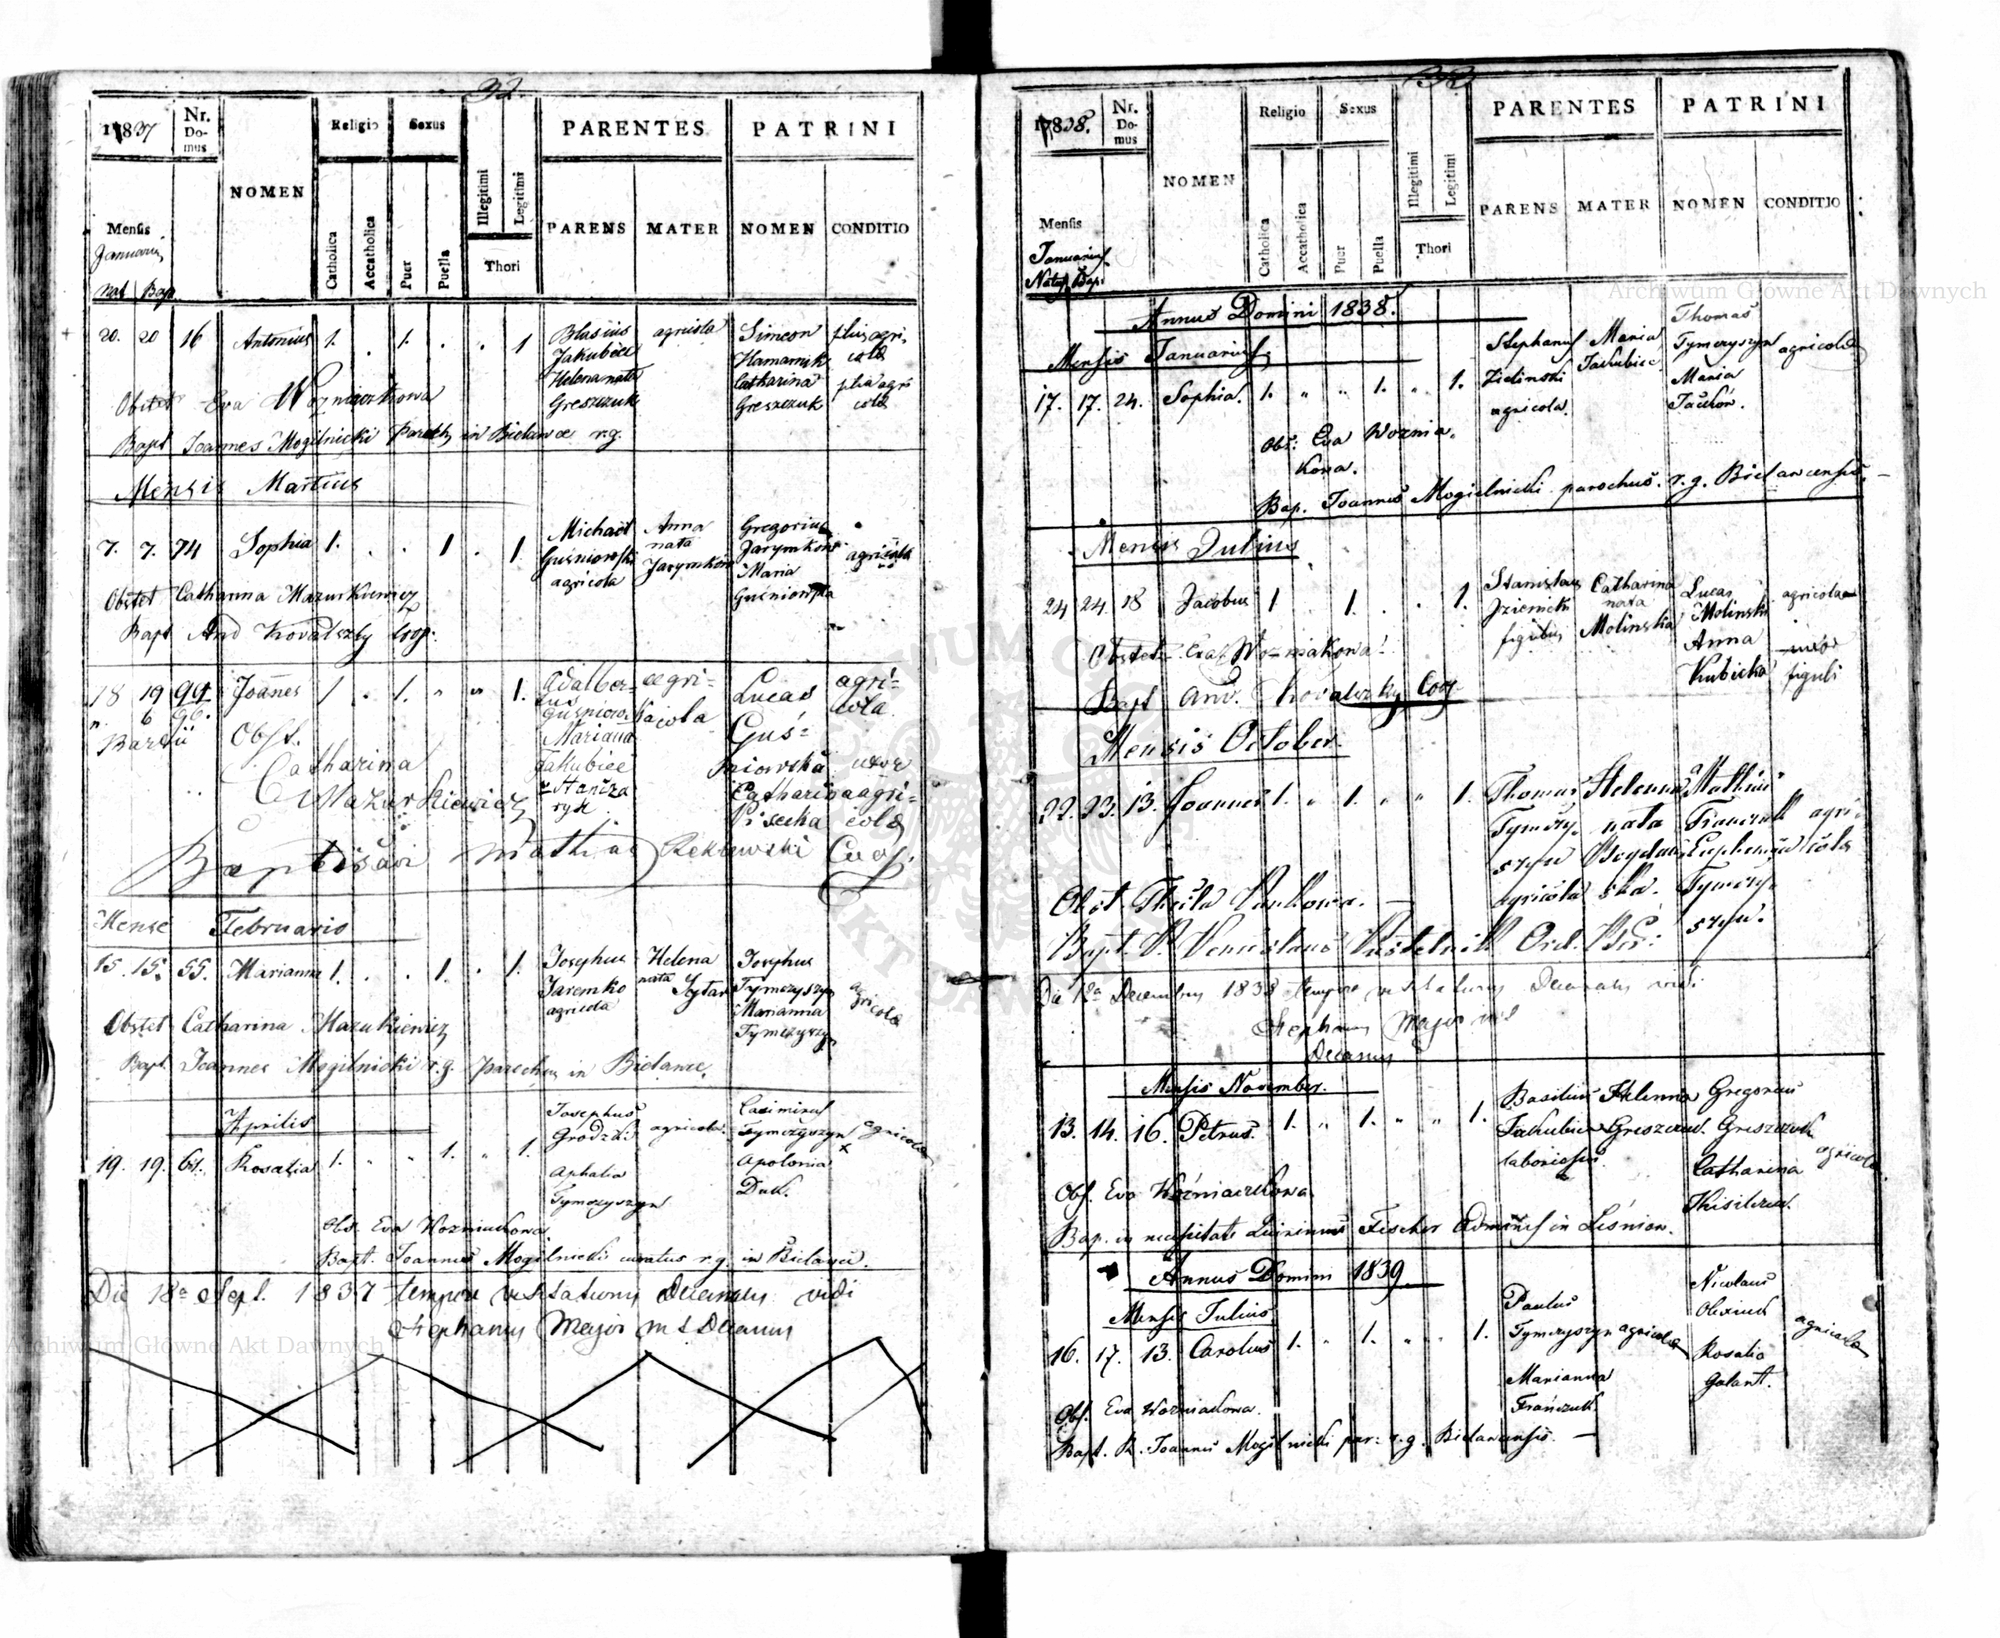 32
1837
Nr. Domus
NOMEN
Religio
Sexus
PARENTES
PATRINI
Mensis
Januarii
nat Bap
Catholica
Accatholica
Puer
Puella
Illegitimi
Legitimi
Thori
PARENS
MATER
NOMEN
CONDITIO
20. 20 16 Antonius 1. . 1. . . 1 Blasius agricola Simeon filius agri
Jakubiec Hamarnik colae
Helena nata Catharina filia agri
Obstet Eva Wozniaczkowa Greszczuk Greszczuk colae
Bapt Joannes Mogilnicki Paroch in Bielawce r.g.
Mensis Martius
7. 7. 74 Sophia 1. . . 1 . 1. Michael Anna Gregorius
Gusniowski nata Jarymkow agricola
agricola Jarymkow Maria
Obstet Catharina Mazurkiewicz Gusniowska
Bapt And Kovalszky Coop.
18 19 94 Joanes 1 . 1. " " 1. Adalber= agri= Lucas agri=
tus cola cola
Obst. Mariana Gus=
Catharina Jakubiec niowska uxor
Mazurkiewicz Catharina agri=
Pisecka colae
Baptisavi Mathias Coop.
Mense Februario
15. 15. 55. Marianna 1. . . 1. . 1. Josephus Helena Josephus
Jaremko nata Tymczyszyn
agricola Marianna agricola
Obstet Catharina Mazurkiewicz Tymczyszyn
Bapt. Joannes Mogilnicki r.g. parochus in Bielawce.
Aprilis Josephus Casimirus
Grodzki agricola. Tymczyszyn agricola
19. 19. 61. Rosalia 1. " " 1. " 1. Aphalia Apolonia
Tymczyszyn Duk.
Obst. Eva Wozniakowa
Bapt. Joannes Mogilnicki curatus r.g. in Bielawce.
Die 18a Sept. 1837 tempore visitationis decanalis vidi
Stephanus Major Decanus
Archiwum Główne Akt Dawnych
33
1838.
Nr. Domus
NOMEN
Religio
Sexus
PARENTES
PATRINI
Mensis
Januarius
Natus Bap.
Catholica
Accatholica
Puer
Puella
Illegitimi
Legitimi
Thori
PARENS
MATER
NOMEN
CONDITIO
Archiwum Główne Akt Dawnych
Annus Domini 1838.
Thomas
Mensis Januarius Stephanus Maria Tymczyszyn agricolae
17. 17. 24. Sophia. 1. " " 1. " 1. Zielinski Jakubiec Maria
agricola.
Obs: Eva Woznia
kowa.
Bap. Joannes Mogielnicki parochus. r.g. Bielawcensis.
Mensis Julius
24 24. 18 Jacobus 1 . 1. . . 1. Stanislaus Catharina Lucas agricola
nata Molinski
figulus Molinska Anna uxor
Obstet. Eva Wozniakowa Kubicka figuli
Bapt And. Kovalszky Coop.
Mensis October
22. 23. 13. Joannes 1. " 1. " " 1. Thomas Helenna Mathias
Tymczy- nata Franczuk agri-
szyn colae
agricola ska. Tymczy-
szyn.
Bapt. P. Venceslaus Ord.
Die 12a Decembris 1838 tempore visitationis Decanalis vidi
Stephanus Major
Decanus
Mensis November.
13. 14. 16. Petrus. 1. " 1. " " 1. Basilius Helenna Gregorius
Jakubiec Greszczuk. Greszczuk
Catharina agricolae
Obs. Eva Woźniaczkowa
Bap. in necessitate Quirinus Fischer Adminis in Leśniow.
Annus Domini 1839
Mensis Julius Paulus Nicolaus
16. 17. 13. Carolus 1. " 1. " " 1. Tymczyszyn agricolae agricolae
Marianna Rosalia
Frańczuk Galant.
Obs. Eva Wozniakowa.
Bapt. R. Joannes Mogilnicki par: r.g. Bielawcensis. —